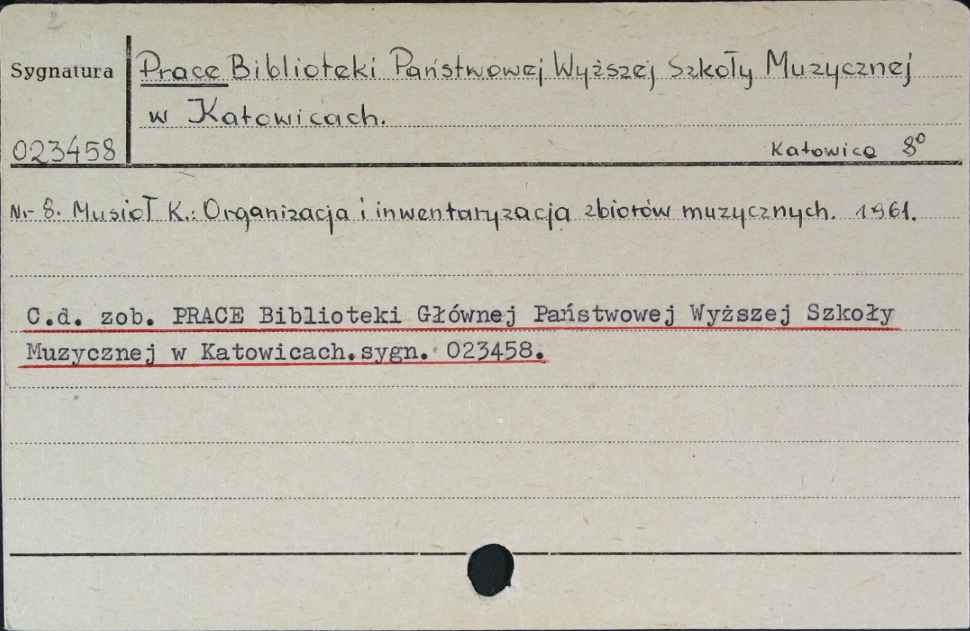 Sygnatura
Prace Biblioteki Państwowej Wyższej Szkoły Muzycznej
w Katowicach.
023458
Katowice 8°
Nr 8. Musioł K.: Organizacja i inwentaryzacja zbiorów muzycznych. 1961.
C.d. zob. PRACE Biblioteki Głównej Państwowej Wyższej Szkoły
Muzycznej w Katowicach.sygn. 023458.